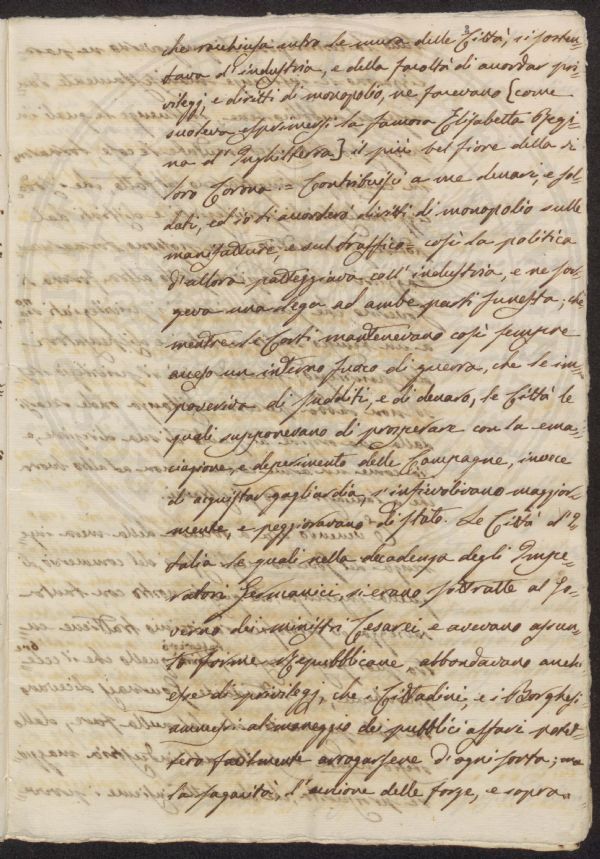 che racchiusa entro le mura delle Città, si sosten-
tava d'industria, e della facoltà di accordar pri-
vilegj, e diritti di monopolio, ne facevano {come
suoleva esprimersi la famosa Elisabetta Regi-
na d'Inghilterra} il più bel fiore della di
loro Corona = Contribuisci a me denari, e sol-
dati, ed io ti accorderò diritti di monopolio sulle
manifatture, e sul traffico = così la politica
d'allora patteggiava coll'industria, e ne sor-
geva una lega ad ambe parti funesta; che
mentre le Corti mantenevano così sempre
acceso un interno fuoco di guerra, che le im-
poveriva di sudditi, e di denaro, le Città le
quali supponevano di prosperare con la ema-
ciazione, e deperimento delle Campagne, invece
di acquistar gagliardia, s'infievolivano maggior-
mente, e peggioravano di stato. Le Città d'I-
talia le quali nella decadenza degli Impe-
ratori Germanici, si erano sottratte al Go-
verno dei ministri Cesarei e avevano assun-
to forme Repubblicane, abbondavano anch'
esse di privilegj, che i Cittadini, e i Borghesi
ammessi al maneggio dei pubblici affari potet-
tero facilmente arrogarsene di ogni sorta; ma
la sagacità, l'unione delle forze, e sopra-